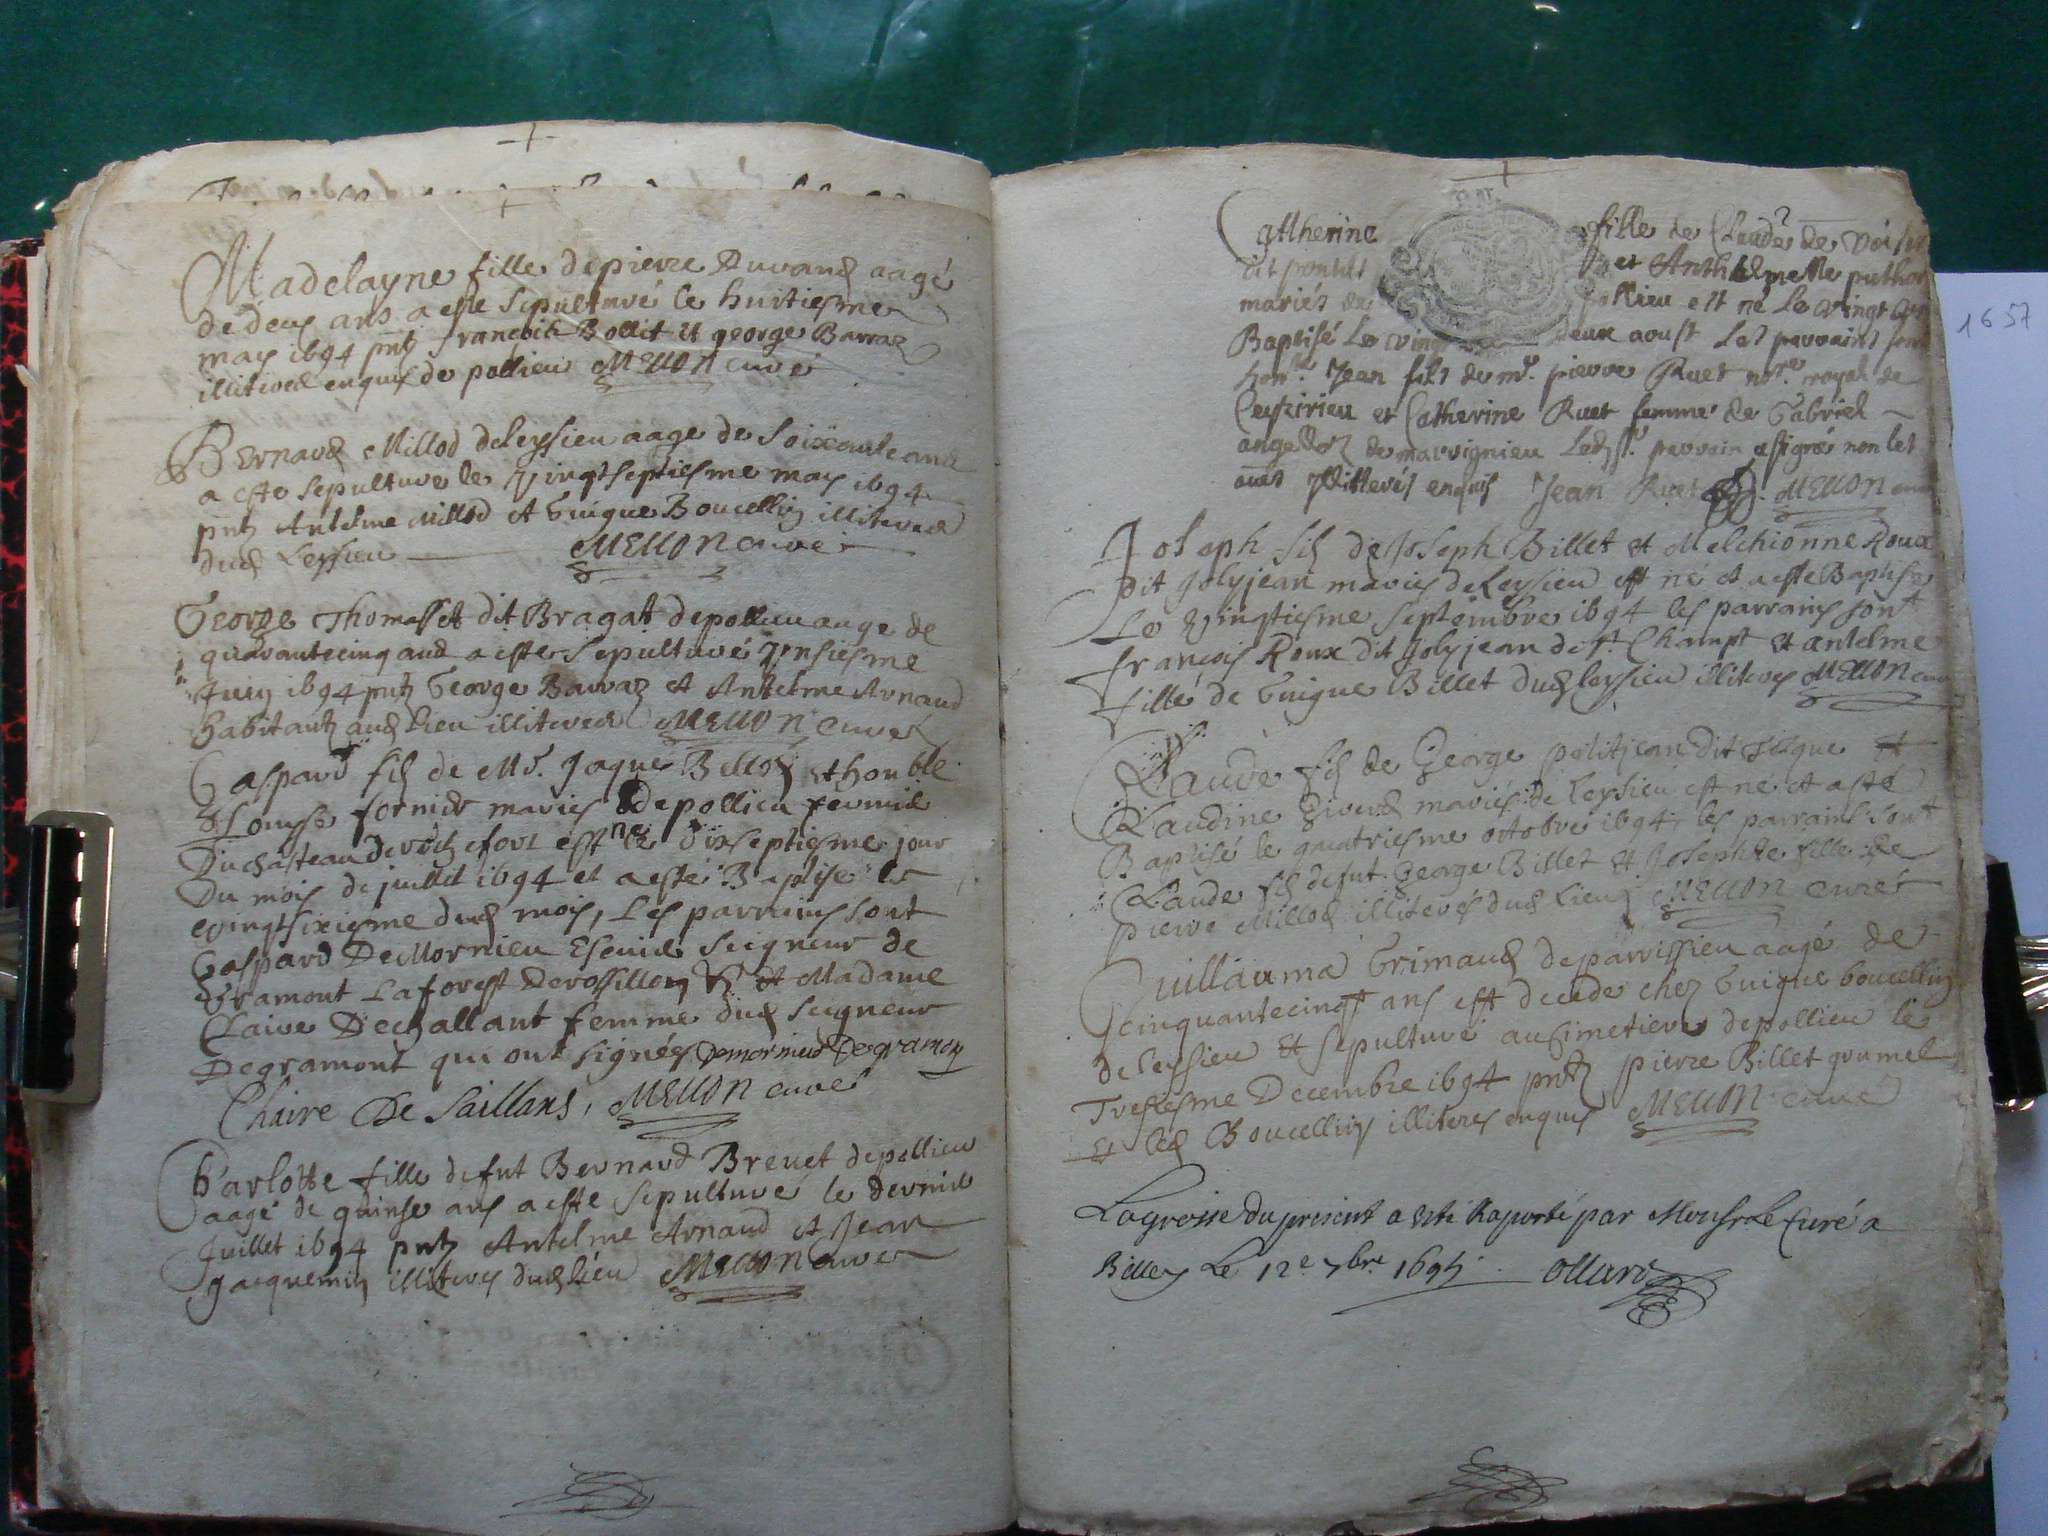 Madelayne fille de pierre Durand aagé
de deux ans a este sepulturé le huitiesme
may 1694 pntz francois Bollit et george Barraz
illiteres enquis de pollieu MELLON curé
Bernard Millod de Leyssieu aage de soixante ans
a este sepulture le vingtseptiesme may 1694
pntz Antelme Millod et Guigue Boucellin illiteres
dud Leyssieu MELLON curé
George Thomasset dit Bragat de pollieu aage de
quarantecinq ans a este sepulturé
Juin 1694 pntz George Barraz et Antelme Arnaud
habitantz aud lieu illiteres MELLON curé
Gaspard filz de Mr. Jaque et honble
Louyse fornier mariés de pollieu fermier
du chasteau de rochefort est né le dixseptiesme jour
du mois de juillet 1694 et a esté Baptisé le
vingtsixiesme dud mois, Les parrains sont
Gaspard DeMornieu Escuier Seigneur de
Gramont Laforest Derossillon et Madame
Claire Dechallant femme dud seigneur
Degramont qui ont signés Demornieu Degramon
Chaire De Saillans, MELLON curé
Charlotte fille de fut Bernard Brevet de pollieu
aagé de quinse ans a este sepulturé le dernier
Juillet 1694 pntz Antelme Arnaud et Jean
Jacquemin illiteres dud lieu MELLON curé
Catherine fille de Claude de
dit et Anthelmette
mariés de pollieu est né le vingt
Baptisé Le vingt deux aoust Les parrains sont
hon. Jean filz de mr. pierre Ruet nore. royal de
Ceyzirieu et Catherine Ruet femme de Gabriel
de marvignieu parrain a signé non les
illitterés enquis Jean Ruet MELLON curé
Joseph filz de Joseph Billet et Melchionne Roux
dit Jolyjean mariés de Leyssieu est né et a este Baptisé
Le vingtiesme septembre 1694 les parrains sont
françois Roux dit Jolyjean de st. Champt et antelme
fille de Guigue Billet dud leyssieu illiteres MELLON curé
Claude filz de George petitjean dit et
Claudine mariés de Leyssieu est né et a sté
Baptisé le quatriesme octobre 1694 les parrains sont
Claude filz de fut George Billet et Josephte fille de
pierre Millod illiterés dud lieu MELLON curé
Guillauma Grimaud de parvissieu aagé de
cinquantecinq ans est decede chez Guigue boucellin
de leyssieu et sepulturé au Cimetiere de pollieu le
Tresiesme Decembre 1694 pntz pierre Billet grumel
et led Boucellin illiteres enquis MELLON curé
Lagrosse du present a esté Raporté par Monsr Le Curé a
Belley Le 12e 7bre 1695
1657